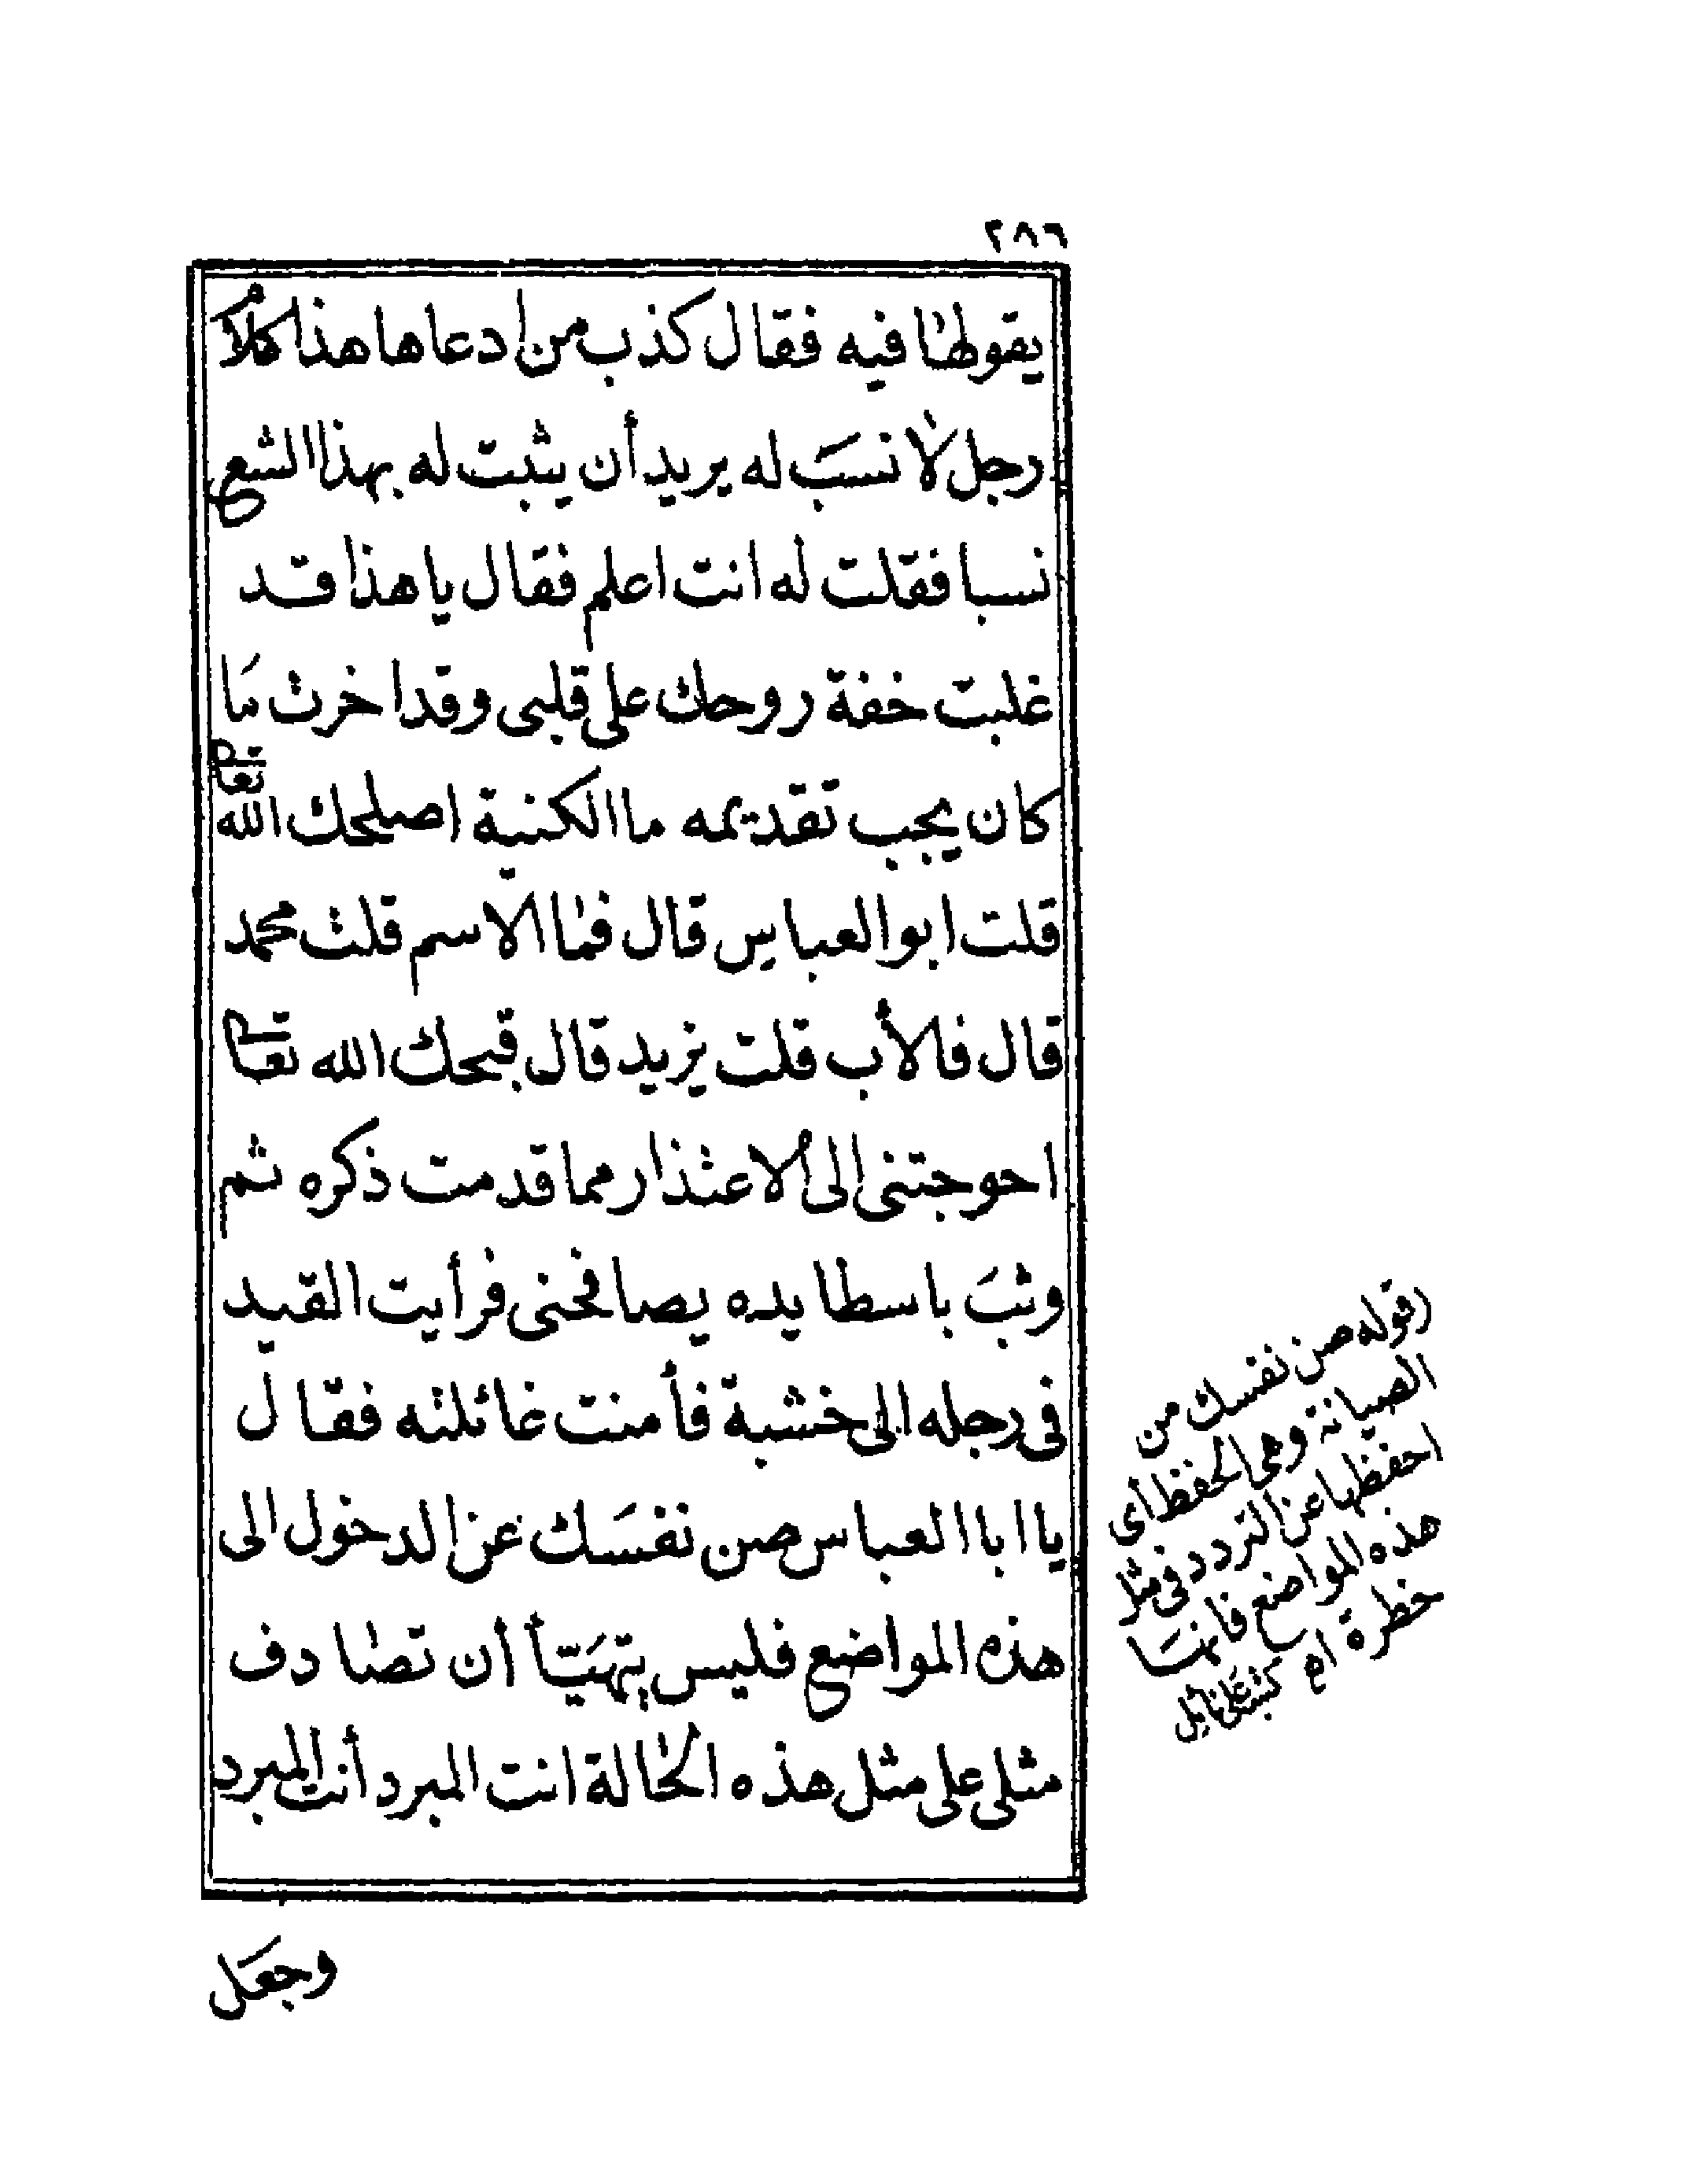 ٢٨٦
يقولها فيه فقال كذب من ادعاها هذا كلام
رجل لا نسب له يريد أن يثبت له بهذا الشعر
نسبا فقلت له انت اعلم فقال يا هذا قد
غلبت خفة روحك على قلبى وقد اخرت ما
كان يجب تقديمه ما الكنية اصلحك الله تعالى
قلت ابو العباس قال فما الاسم قلت محمد
قال فالأب قلت يزيد قال قبحك الله تعالى
احوجتنى الى الاعتذار مما قدمت ذكره ثم
وثب باسطا يده يصافحنى فرأيت القيد
فى رجله الى خشبة فأمنت غائلته فقال
يا ابا العباس صن نفسك عن الدخول الى
هذه المواضع فليس يتهيّأ أن تصادف
مثلى على مثل هذه الحالة انت المبرد أنت المبرد
وجعل
(قوله صن نفسك من
الصيانة وهى الحفظ اى
احفظها عن التردد فى مثل
هذه المواضع فانها
خطرة اه